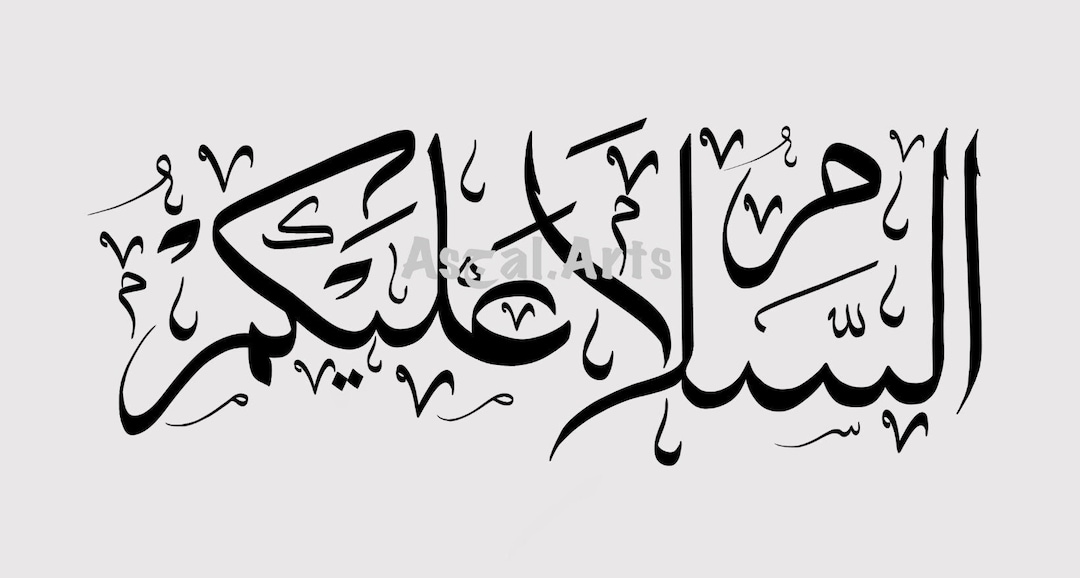 السَّلَامُ عَلَيْكُمْ
Asgal.Arts